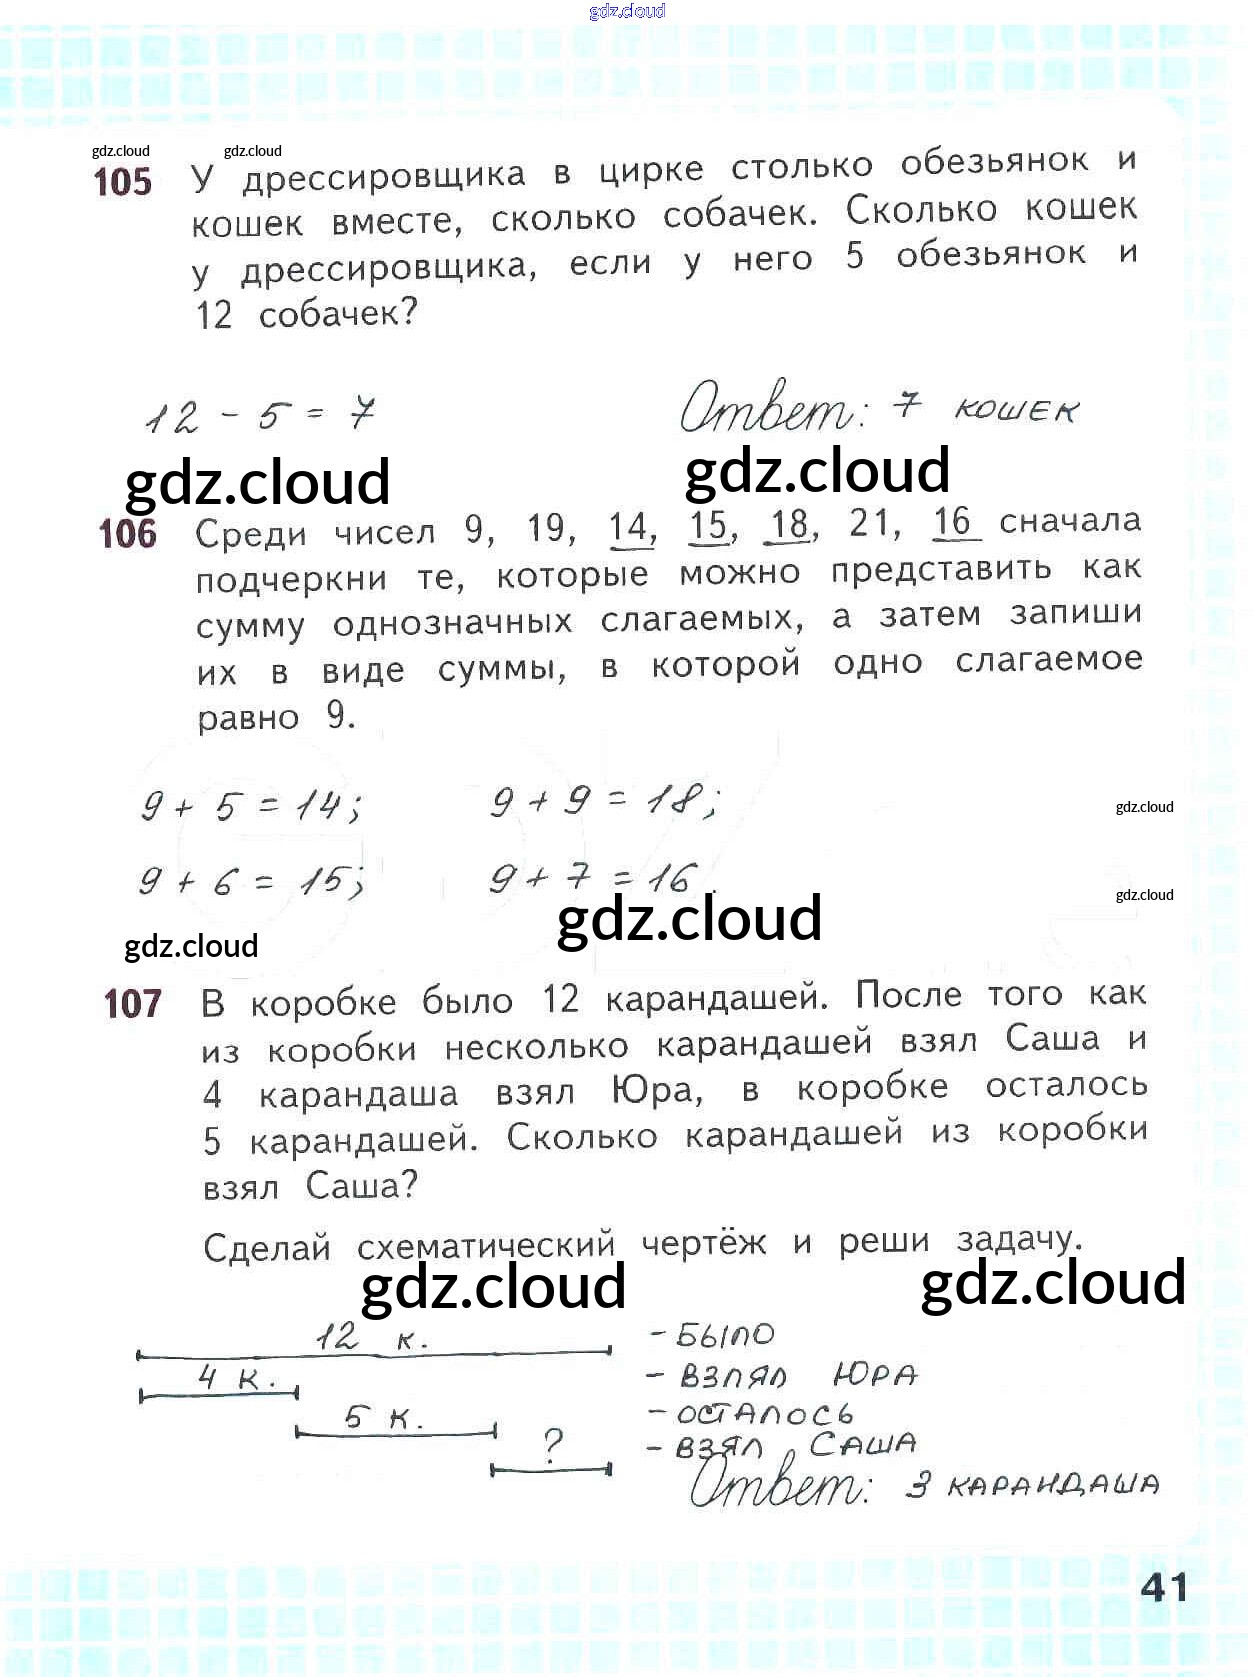 gdz.cloud
gdz.cloud gdz.cloud
105 У дрессировщика в цирке столько обезьянок и
кошек вместе, сколько собачек. Сколько кошек
у дрессировщика, если у него 5 обезьянок и
12 собачек?
12 - 5 = 7 Ответ: 7 кошек
gdz.cloud gdz.cloud
106 Среди чисел 9, 19, 14, 15, 18, 21, 16 сначала
подчеркни те, которые можно представить как
сумму однозначных слагаемых, а затем запиши
их в виде суммы, в которой одно слагаемое
равно 9.
9 + 5 = 14; 9 + 9 = 18;
gdz.cloud
9 + 6 = 15; 9 + 7 = 16.
gdz.cloud
gdz.cloud
gdz.cloud
107 В коробке было 12 карандашей. После того как
из коробки несколько карандашей взял Саша и
4 карандаша взял Юра, в коробке осталось
5 карандашей. Сколько карандашей из коробки
взял Саша?
Сделай схематический чертёж и реши задачу.
gdz.cloud gdz.cloud
12 к. - БЫЛО
4 к. - ВЗЯЛ ЮРА
5 к. - ОСТАЛОСЬ
? - ВЗЯЛ САША
Ответ: 3 КАРАНДАША
41